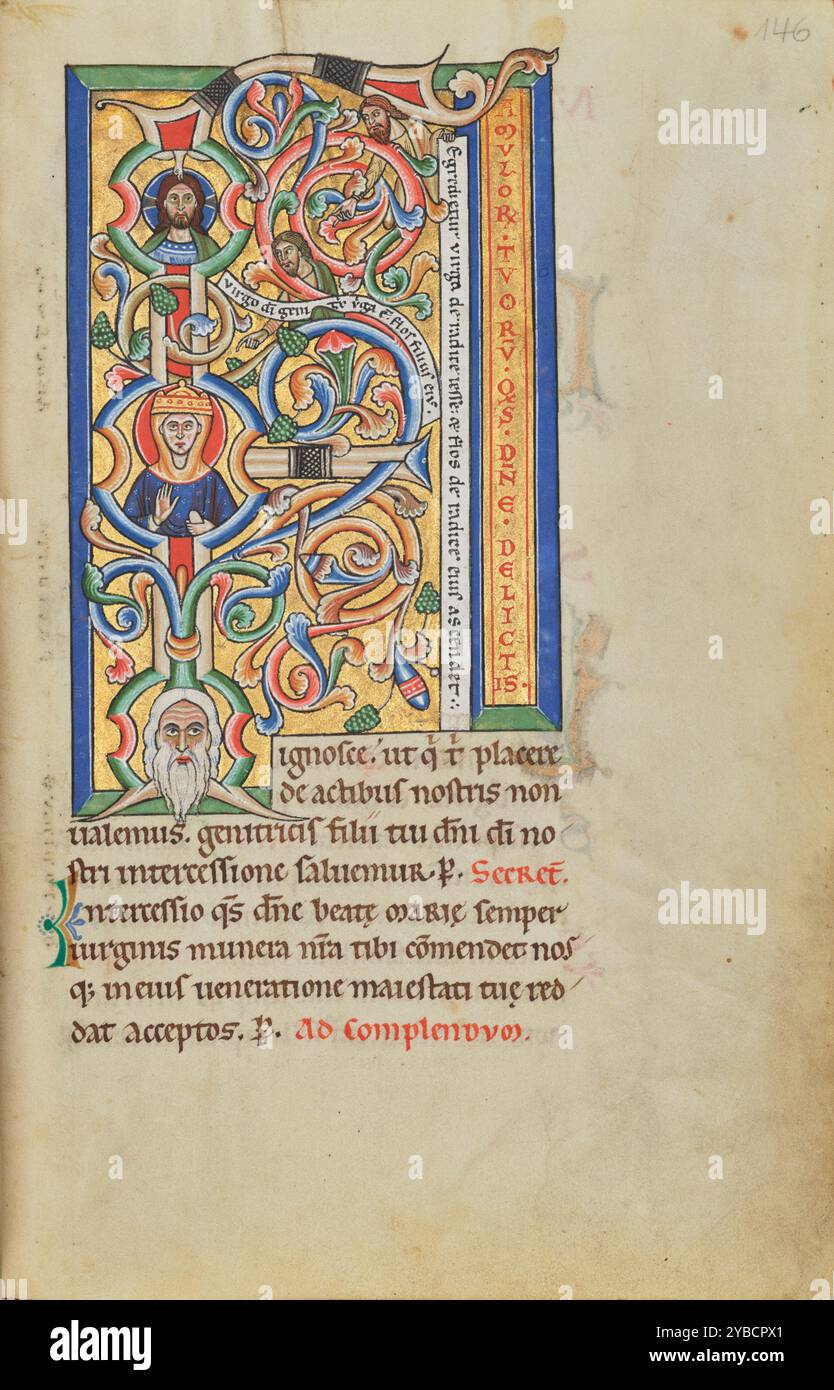 146
AMVLOR·TVORV̄·QS̄·DN̄E·DELICTIS·
Egredietur uirga de radice iesse· & flos de radice eius ascendet·:
virgo di geni t̄r v̄ga ē· flos filius eius·
ignosce· ut q̄ t̄ placere
de actibus nostris non
ualemus. genitricis filii tui dn̄i di no
stri intercessione saluemur. P. Secret̄.
Intercessio qs̄ dn̄e beatę Marię semper
uirginis munera nr̄a tibi cōmendet nos
q; in eius ueneratione maiestati tuę red
dat acceptos. P. Ad Complendvm.
alamy
alamy
Image ID: 2YBCPX1
www.alamy.com